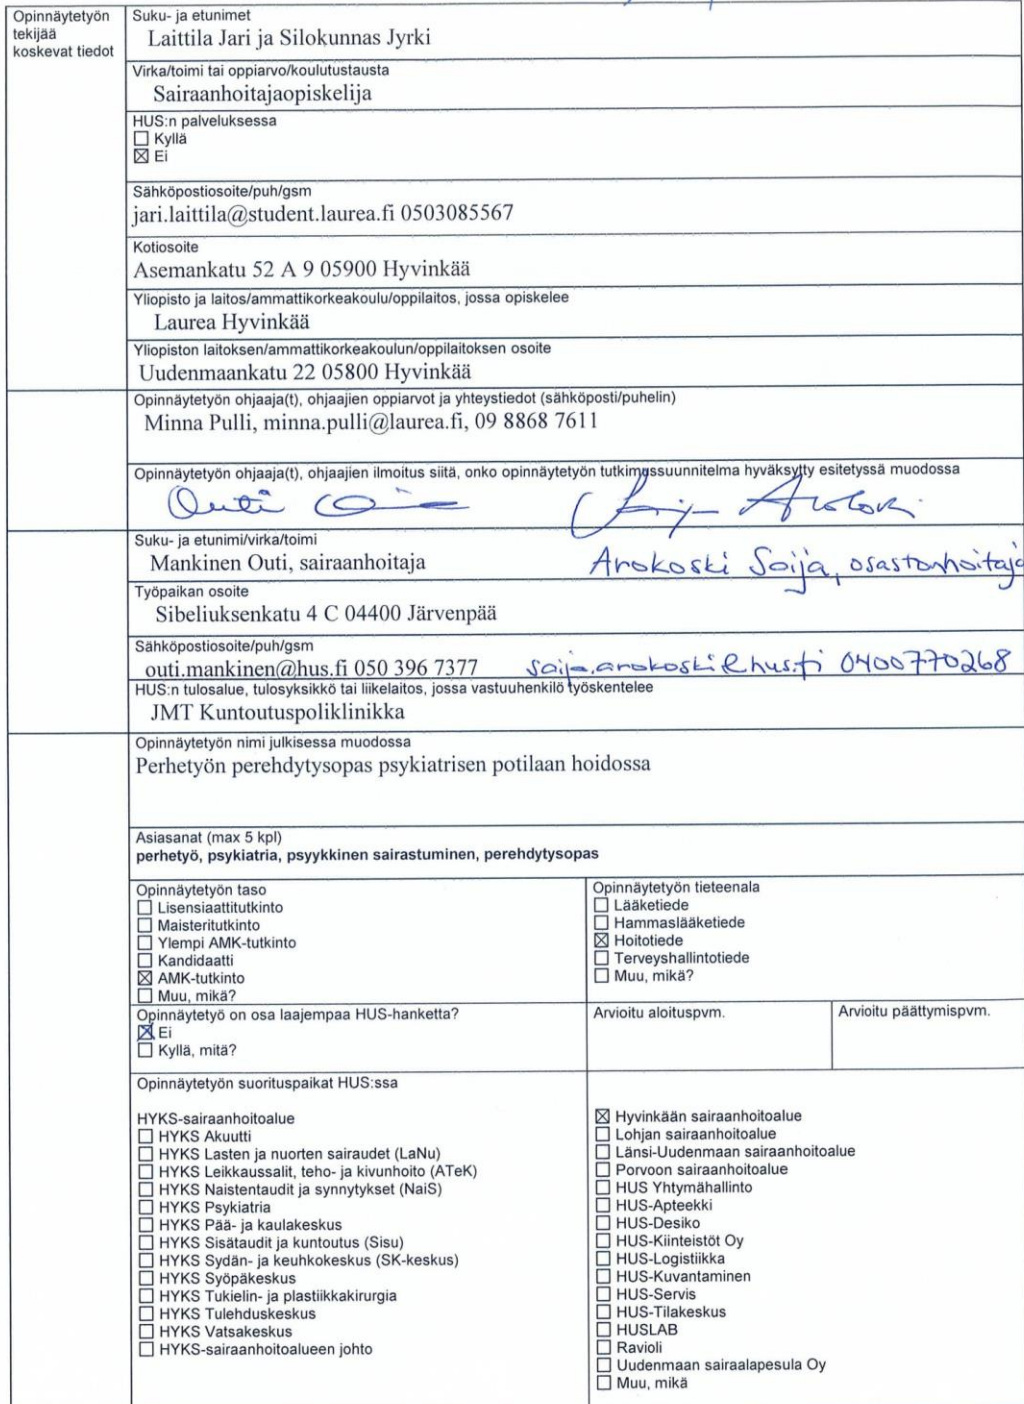 Opinnäytetyön
tekijää
koskevat tiedot
Suku- ja etunimet
Laittila Jari ja Silokunnas Jyrki
Virka/toimi tai oppiarvo/koulutustausta
Sairaanhoitajaopiskelija
HUS:n palveluksessa
☐ Kyllä
☒ Ei
Sähköpostiosoite/puh/gsm
jari.laittila@student.laurea.fi 0503085567
Kotiosoite
Asemankatu 52 A 9 05900 Hyvinkää
Yliopisto ja laitos/ammattikorkeakoulu/oppilaitos, jossa opiskelee
Laurea Hyvinkää
Yliopiston laitoksen/ammattikorkeakoulun/oppilaitoksen osoite
Uudenmaankatu 22 05800 Hyvinkää
Opinnäytetyön ohjaaja(t), ohjaajien oppiarvot ja yhteystiedot (sähköposti/puhelin)
Minna Pulli, minna.pulli@laurea.fi, 09 8868 7611
Opinnäytetyön ohjaaja(t), ohjaajien ilmoitus siitä, onko opinnäytetyön tutkimussuunnitelma hyväksytty esitetyssä muodossa
Outi
Suku- ja etunimi/virka/toimi
Mankinen Outi, sairaanhoitaja Arokoski Soija, osastonhoitaja
Työpaikan osoite
Sibeliuksenkatu 4 C 04400 Järvenpää
Sähköpostiosoite/puh/gsm
outi.mankinen@hus.fi 050 396 7377 soija.arokoski@hus.fi 0400770268
HUS:n tulosalue, tulosyksikkö tai liikelaitos, jossa vastuuhenkilö työskentelee
JMT Kuntoutuspoliklinikka
Opinnäytetyön nimi julkisessa muodossa
Perhetyön perehdytysopas psykiatrisen potilaan hoidossa
Asiasanat (max 5 kpl)
perhetyö, psykiatria, psyykkinen sairastuminen, perehdytysopas
Opinnäytetyön taso
☐ Lisensiaattitutkinto
☐ Maisteritutkinto
☐ Ylempi AMK-tutkinto
☐ Kandidaatti
☒ AMK-tutkinto
☐ Muu, mikä?
Opinnäytetyön tieteenala
☐ Lääketiede
☐ Hammaslääketiede
☒ Hoitotiede
☐ Terveyshallintotiede
☐ Muu, mikä?
Opinnäytetyö on osa laajempaa HUS-hanketta?
☒ Ei
☐ Kyllä, mitä?
Arvioitu aloituspvm.
Arvioitu päättymispvm.
Opinnäytetyön suorituspaikat HUS:ssa
HYKS-sairaanhoitoalue
☐ HYKS Akuutti
☐ HYKS Lasten ja nuorten sairaudet (LaNu)
☐ HYKS Leikkaussalit, teho- ja kivunhoito (ATeK)
☐ HYKS Naistentaudit ja synnytykset (NaiS)
☐ HYKS Psykiatria
☐ HYKS Pää- ja kaulakeskus
☐ HYKS Sisätaudit ja kuntoutus (Sisu)
☐ HYKS Sydän- ja keuhkokeskus (SK-keskus)
☐ HYKS Syöpäkeskus
☐ HYKS Tukielin- ja plastiikkakirurgia
☐ HYKS Tulehduskeskus
☐ HYKS Vatsakeskus
☐ HYKS-sairaanhoitoalueen johto
☒ Hyvinkään sairaanhoitoalue
☐ Lohjan sairaanhoitoalue
☐ Länsi-Uudenmaan sairaanhoitoalue
☐ Porvoon sairaanhoitoalue
☐ HUS Yhtymähallinto
☐ HUS-Apteekki
☐ HUS-Desiko
☐ HUS-Kiinteistöt Oy
☐ HUS-Logistiikka
☐ HUS-Kuvantaminen
☐ HUS-Servis
☐ HUS-Tilakeskus
☐ HUSLAB
☐ Ravioli
☐ Uudenmaan sairaalapesula Oy
☐ Muu, mikä